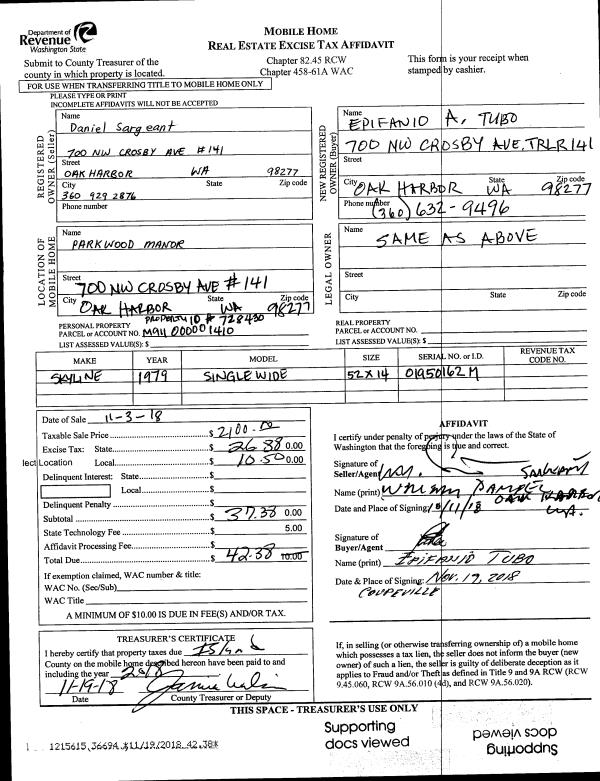 Department of
Revenue
Washington State
MOBILE HOME
REAL ESTATE EXCISE TAX AFFIDAVIT
Submit to County Treasurer of the
county in which property is located.
Chapter 82.45 RCW
Chapter 458-61A WAC
This form is your receipt when
stamped by cashier.
FOR USE WHEN TRANSFERRING TITLE TO MOBILE HOME ONLY
PLEASE TYPE OR PRINT
INCOMPLETE AFFIDAVITS WILL NOT BE ACCEPTED
REGISTERED
OWNER (Seller)
Name
Daniel Sargeant
700 NW CROSBY AVE #141
Street
OAK HARBOR WA 98277
City State Zip code
360 929 2876
Phone number
NEW REGISTERED
OWNER (Buyer)
Name
EPIFANIO A. TUBO
700 NW CROSBY AVE, TRLR 141
Street
City State Zip code
OAK HARBOR WA 98277
Phone number
(360) 632-9496
LOCATION OF
MOBILE HOME
Name
PARKWOOD MANOR
Street
700 NW CROSBY AVE #141
City State Zip code
OAK HARBOR WA 98277
LEGAL OWNER
Name
SAME AS ABOVE
Street
City State Zip code
PROPERTY ID # 728430
PERSONAL PROPERTY
PARCEL or ACCOUNT NO.
LIST ASSESSED VALUE(S): $
REAL PROPERTY
PARCEL or ACCOUNT NO.
LIST ASSESSED VALUE(S): $
MAKE YEAR MODEL SIZE SERIAL NO. or I.D. REVENUE TAX CODE NO.
SKYLINE 1979 SINGLE WIDE 52X14 01950162M
Date of Sale 11-3-18
Taxable Sale Price $ 2,100.00
Excise Tax: State $ 26.88 0.00
lect Location Local $ 10.50 0.00
Delinquent Interest: State $
Local $
Delinquent Penalty $
Subtotal $ 37.38 0.00
State Technology Fee $ 5.00
Affidavit Processing Fee $
Total Due $ 42.38 10.00
If exemption claimed, WAC number & title:
WAC No. (Sec/Sub)
WAC Title
A MINIMUM OF $10.00 IS DUE IN FEE(S) AND/OR TAX.
AFFIDAVIT
I certify under penalty of perjury under the laws of the State of
Washington that the foregoing is true and correct.
Signature of
Seller/Agent
Name (print)
Date and Place of Signing:
Signature of
Buyer/Agent
Name (print) EPIFANIO TUBO
Date & Place of Signing: NOV. 19, 2018
COUPEVILLE
TREASURER'S CERTIFICATE
I hereby certify that property taxes due Island
County on the mobile home described hereon have been paid to and
including the year 2018
11-19-18
Date County Treasurer or Deputy
If, in selling (or otherwise transferring ownership of) a mobile home
which possesses a tax lien, the seller does not inform the buyer (new
owner) of such a lien, the seller is guilty of deliberate deception as it
applies to Fraud and/or Theft as defined in Title 9 and 9A RCW (RCW
9.45.060, RCW 9A.56.010 (4d), and RCW 9A.56.020).
THIS SPACE - TREASURER'S USE ONLY
Supporting
docs viewed
Supporting
docs viewed
1215615 36694 11/19/2018 42.38